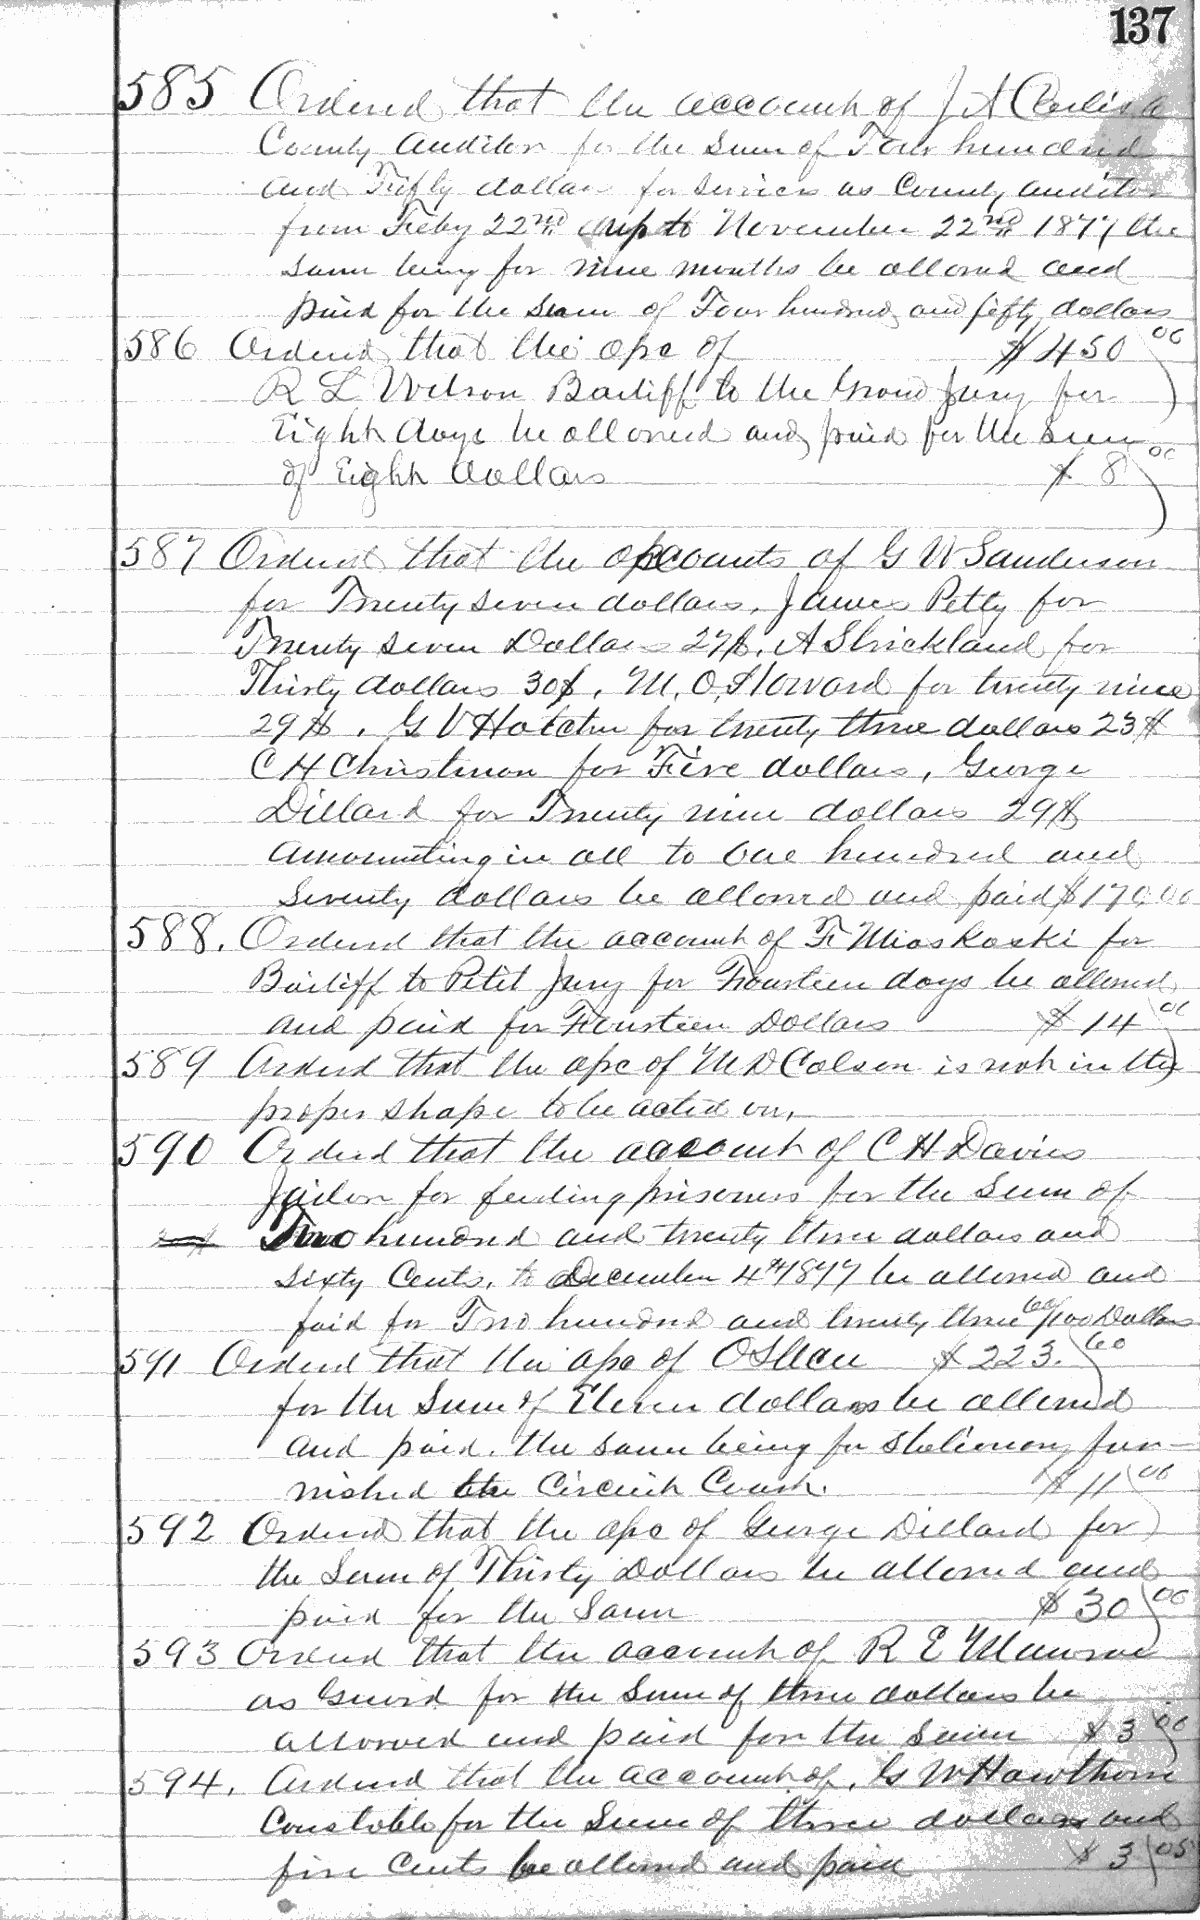 137
585 Ordered that the account of J A Carlisle
County Auditor for the Sum of Four hundred
and Fifty dollars for Services as County auditor
from Feby 22nd up to November 22nd 1877 the
same being for nine months be allowed and
paid for the Sum of Four hundred and fifty dollars
586 Ordered that the apc of $450 00
R L Wilson Bailiff to the Grand Jury for
Eight days be allowed and paid for the Sum
of Eight dollars $ 8 00
587 Ordered that the accounts of G W Sanderson
for Twenty seven dollars, James Petty for
Twenty seven Dollars 27$, A Strickland for
Thirty dollars 30$, M. O. Howard for twenty nine
29$, G V Hatcher for twenty three dollars 23$
C H Christmon for Five dollars, George
Dillard for Twenty nine dollars 29$
amounting in all to One hundred and
Seventy dollars be allowed and paid $170.00
588. Ordered that the account of F Mioskoski for
Bailiff to Petit Jury for Fourteen days be allowed
and paid for Fourteen Dollars $ 14 00
589 Ordered that the apc of M D Colson is not in the
proper shape to be acted on,
590 Ordered that the account of C H Davies
Jailor for feeding prisoners for the Sum of
Two hundred and twenty three dollars and
Sixty Cents, to December 4th 1877 be allowed and
paid for Two hundred and twenty three 60/100 Dollars
591 Ordered that the apc of $223. 60
for the Sum of Eleven dollars be allowed
and paid. the same being for stationery fur-
nished the Circuit Court. $ 11 00
592 Ordered that the apc of George Dillard for
the Sum of Thirty Dollars be allowed and
paid for the Same $ 30 00
593 Ordered that the account of R E Munroe
as Guard for the Sum of three dollars be
allowed and paid for the Same $ 3 00
594. Ordered that the account of, G W Hawthorn
Constable for the Sum of three dollars and
five Cents be allowed and paid $ 3 05